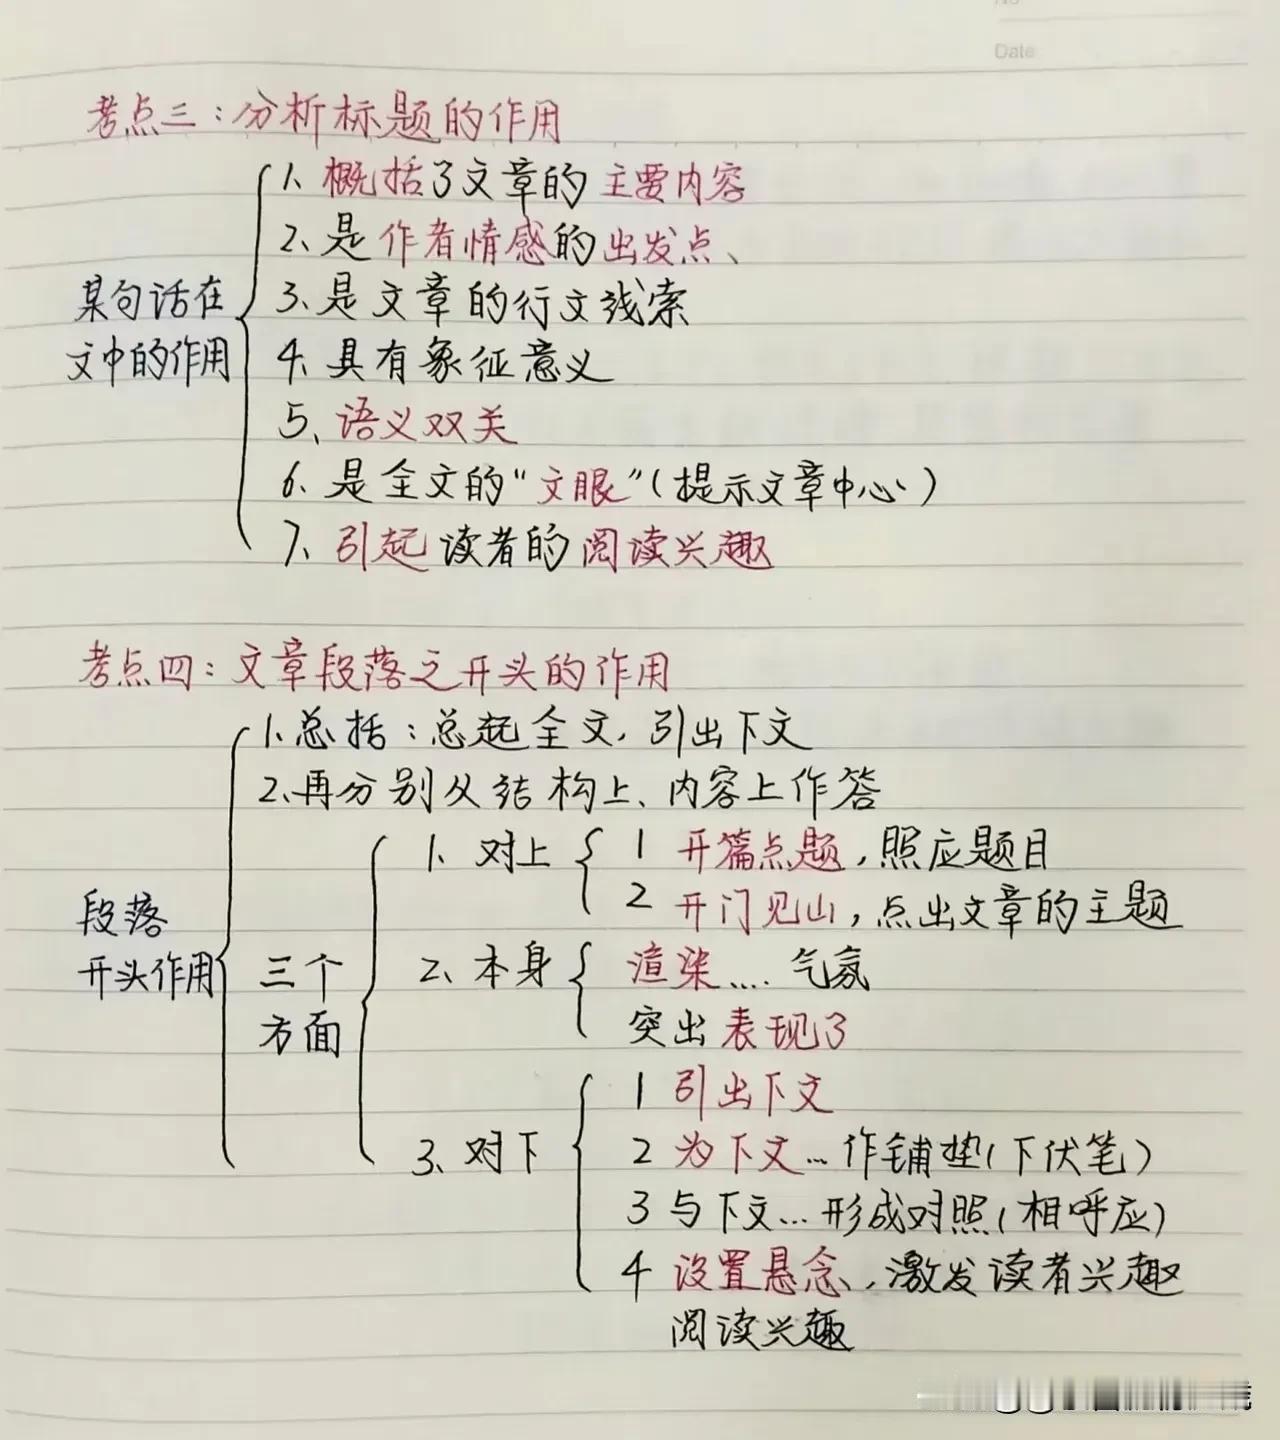 No
Date
考点三：分析标题的作用
1、概括了文章的主要内容
2、是作者情感的出发点、
某句话在
3、是文章的行文线索
文中的作用
4、具有象征意义
5、语义双关
6、是全文的“文眼”（提示文章中心）
7、引起读者的阅读兴趣
考点四：文章段落之开头的作用
1、总括：总起全文，引出下文
2、再分别从结构上、内容上作答
段落
开头作用
三个
方面
1、对上
1 开篇点题，照应题目
2 开门见山，点出文章的主题
2、本身
渲染....气氛
突出表现了
3、对下
1 引出下文
2 为下文...作铺垫（下伏笔）
3 与下文...形成对照（相呼应）
4 设置悬念，激发读者兴趣
阅读兴趣